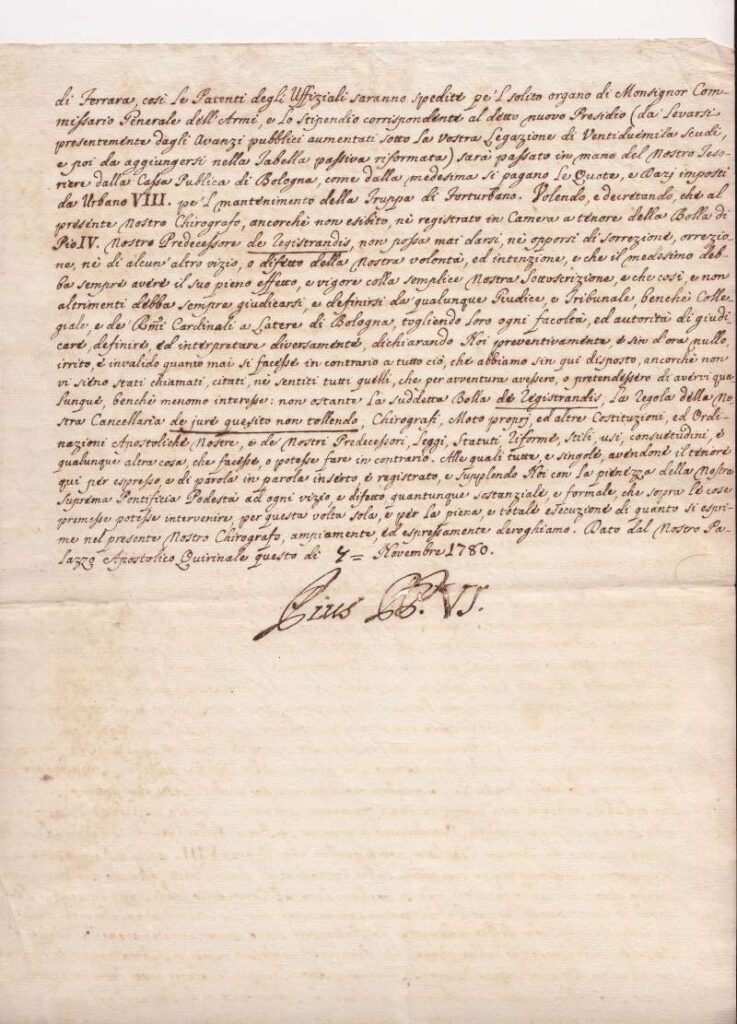 di Ferrara, così le Patenti degli Uffiziali saranno spedite pe 'l solito organo di Monsignor Com=
missario Generale dell'Armi, e lo Stipendio corrispondente al detto nuovo Presidio (da levarsi
presentemente dagli Avanzi pubblici aumentati sotto la vostra Legazione di Ventiduemila scudi,
e poi da aggiungersi nella Tabella passiva riformata) sarà passato in mano del Nostro Teso=
riere dalla Cassa Publica di Bologna, come dalla medesima si pagano le Quote, e Dazj imposti
da Urbano VIII. pe 'l mantenimento della Truppa di Forturbano. Volendo, e decretando, che al
presente Nostro Chirografo, ancorchè non esibito, nè registrato in Camera a tenore della Bolla di
Pio IV. Nostro Predecessore de Registrandis, non possa mai darsi, nè opporsi di sorrezione, orrezio=
ne, nè di alcun'altro vizio, o difetto della Nostra volontà, ed intenzione, e che il medesimo deb=
ba sempre avere il suo pieno effetto, e vigore colla semplice Nostra Sottoscrizione, e che così, e non
altrimenti debba sempre giudicarsi, e definirsi da qualunque Giudice, e Tribunale benchè Colle=
giale, e de Rmi Cardinali a Latere di Bologna, togliendo loro ogni facoltà, ed autorità di giudi=
care, definire, ed interpretare diversamente, dichiarando Noi preventivamente, e sin d'ora nullo,
irrito, e invalido quanto mai si facesse in contrario a tutto ciò, che abbiamo sin qui disposto, ancorchè non
vi sieno stati chiamati, citati, nè sentiti tutti quelli, che per avventura avessero, o pretendessero di avervi qua=
lunque, benchè menomo interesse: non ostante la suddetta Bolla de Registrandis, la Regola della No=
stra Cancellaria de jure quesito non tollendo, Chirografi, Moto proprj, ed altre Costituzioni, ed Ordi=
nazioni Apostoliche Nostre, e de Nostri Predecessori, Leggi, Statuti, Riforme, Stili, usi, consuetudini, e
qualunque altra cosa, che facesse, o potesse fare in contrario. Alle quali tutte, e singole, avendone il tenore
qui per espresso, e di parola in parola inserto, e registrato, e supplendo Noi con la pienezza della Nostra
Suprema Pontificia Podestà ad ogni vizio, e difetto quantunque sostanziale, e formale, che sopra le cose
premesse potesse intervenire, per questa volta sola, e per la piena, e totale esecuzione di quanto si espri=
me nel presente Nostro Chirografo, ampiamente, ed espressamente deroghiamo. Dato dal Nostro Pa=
lazzo Apostolico Quirinale questo di = Novembre 1780.
Pius PP. VI.